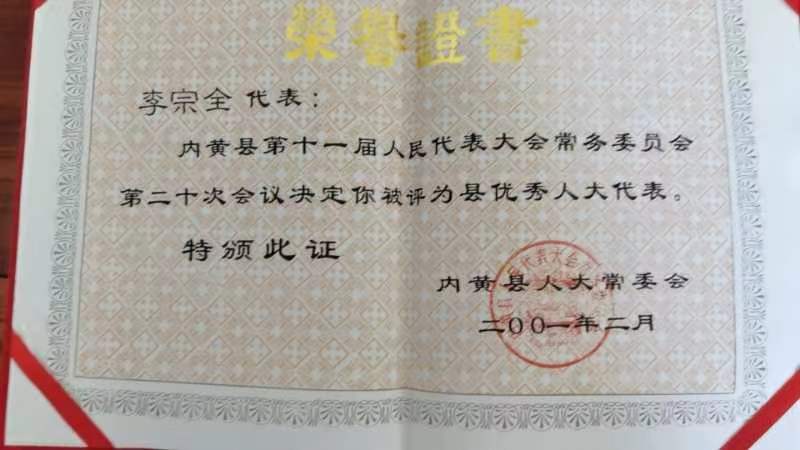 榮譽證書
李宗全 代表：
内黄县第十一届人民代表大会常务委员会
第二十次会议决定你被评为县优秀人大代表。
特颁此证
内黄县人大常委会
二〇〇一年二月
代表大会